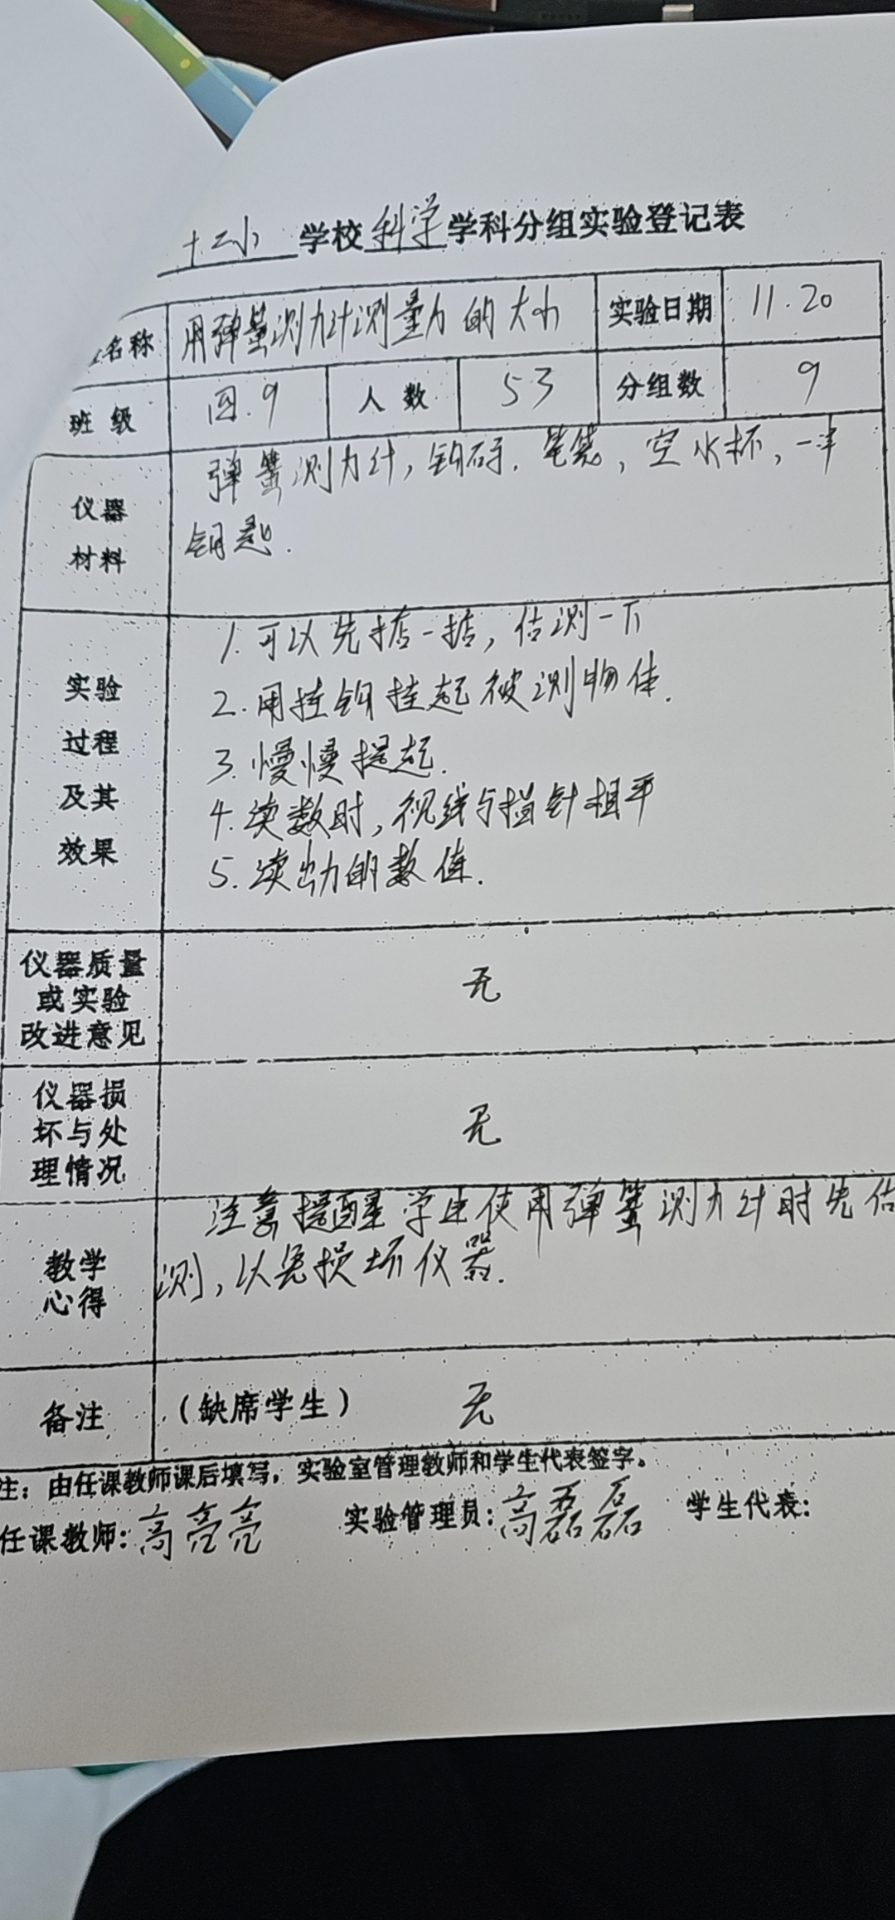 十二小 学校 科学 学科分组实验登记表
名称 用弹簧测力计测量力的大小 实验日期 11.20
班级 四.9 人数 53 分组数 9
仪器材料 弹簧测力计,钩码.笔袋,空水杯,一串
钥匙.
实验过程及其效果 1.可以先掂一掂,估测一下
2.用挂钩挂起被测物体.
3.慢慢提起.
4.读数时,视线与指针相平
5.读出力的数值.
仪器质量或实验改进意见 无
仪器损坏与处理情况 无
教学心得 注意提醒学生使用弹簧测力计时先估
测,以免损坏仪器.
备注 (缺席学生) 无
注:由任课教师课后填写,实验室管理教师和学生代表签字。
任课教师:高亮亮 实验管理员:高磊磊 学生代表: